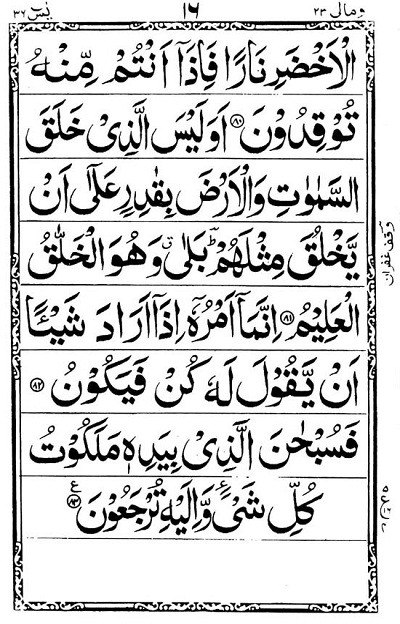 يٰسٓ ٣٦
١٦
ومالى ٢٣
الْاَخْضَرِ نَارًا فَاِذَآ اَنْتُمْ مِّنْهُ
تُوْقِدُوْنَ ﴿۸۰﴾ اَوَلَيْسَ الَّذِىْ خَلَقَ
السَّمٰوٰتِ وَالْاَرْضَ بِقٰدِرٍ عَلٰٓى اَنْ
يَّخْلُقَ مِثْلَهُمْ ؕ بَلٰى ۗ وَهُوَ الْخَلّٰقُ
الْعَلِيْمُ ﴿۸۱﴾ اِنَّمَآ اَمْرُهٗٓ اِذَآ اَرَادَ شَيْـًٔا
اَنْ يَّقُوْلَ لَهٗ كُنْ فَيَكُوْنُ ﴿۸۲﴾
فَسُبْحٰنَ الَّذِىْ بِيَدِهٖ مَلَكُوْتُ
كُلِّ شَىْءٍ وَّاِلَيْهِ تُرْجَعُوْنَ ﴿۸۳﴾ ع
وقف غفران